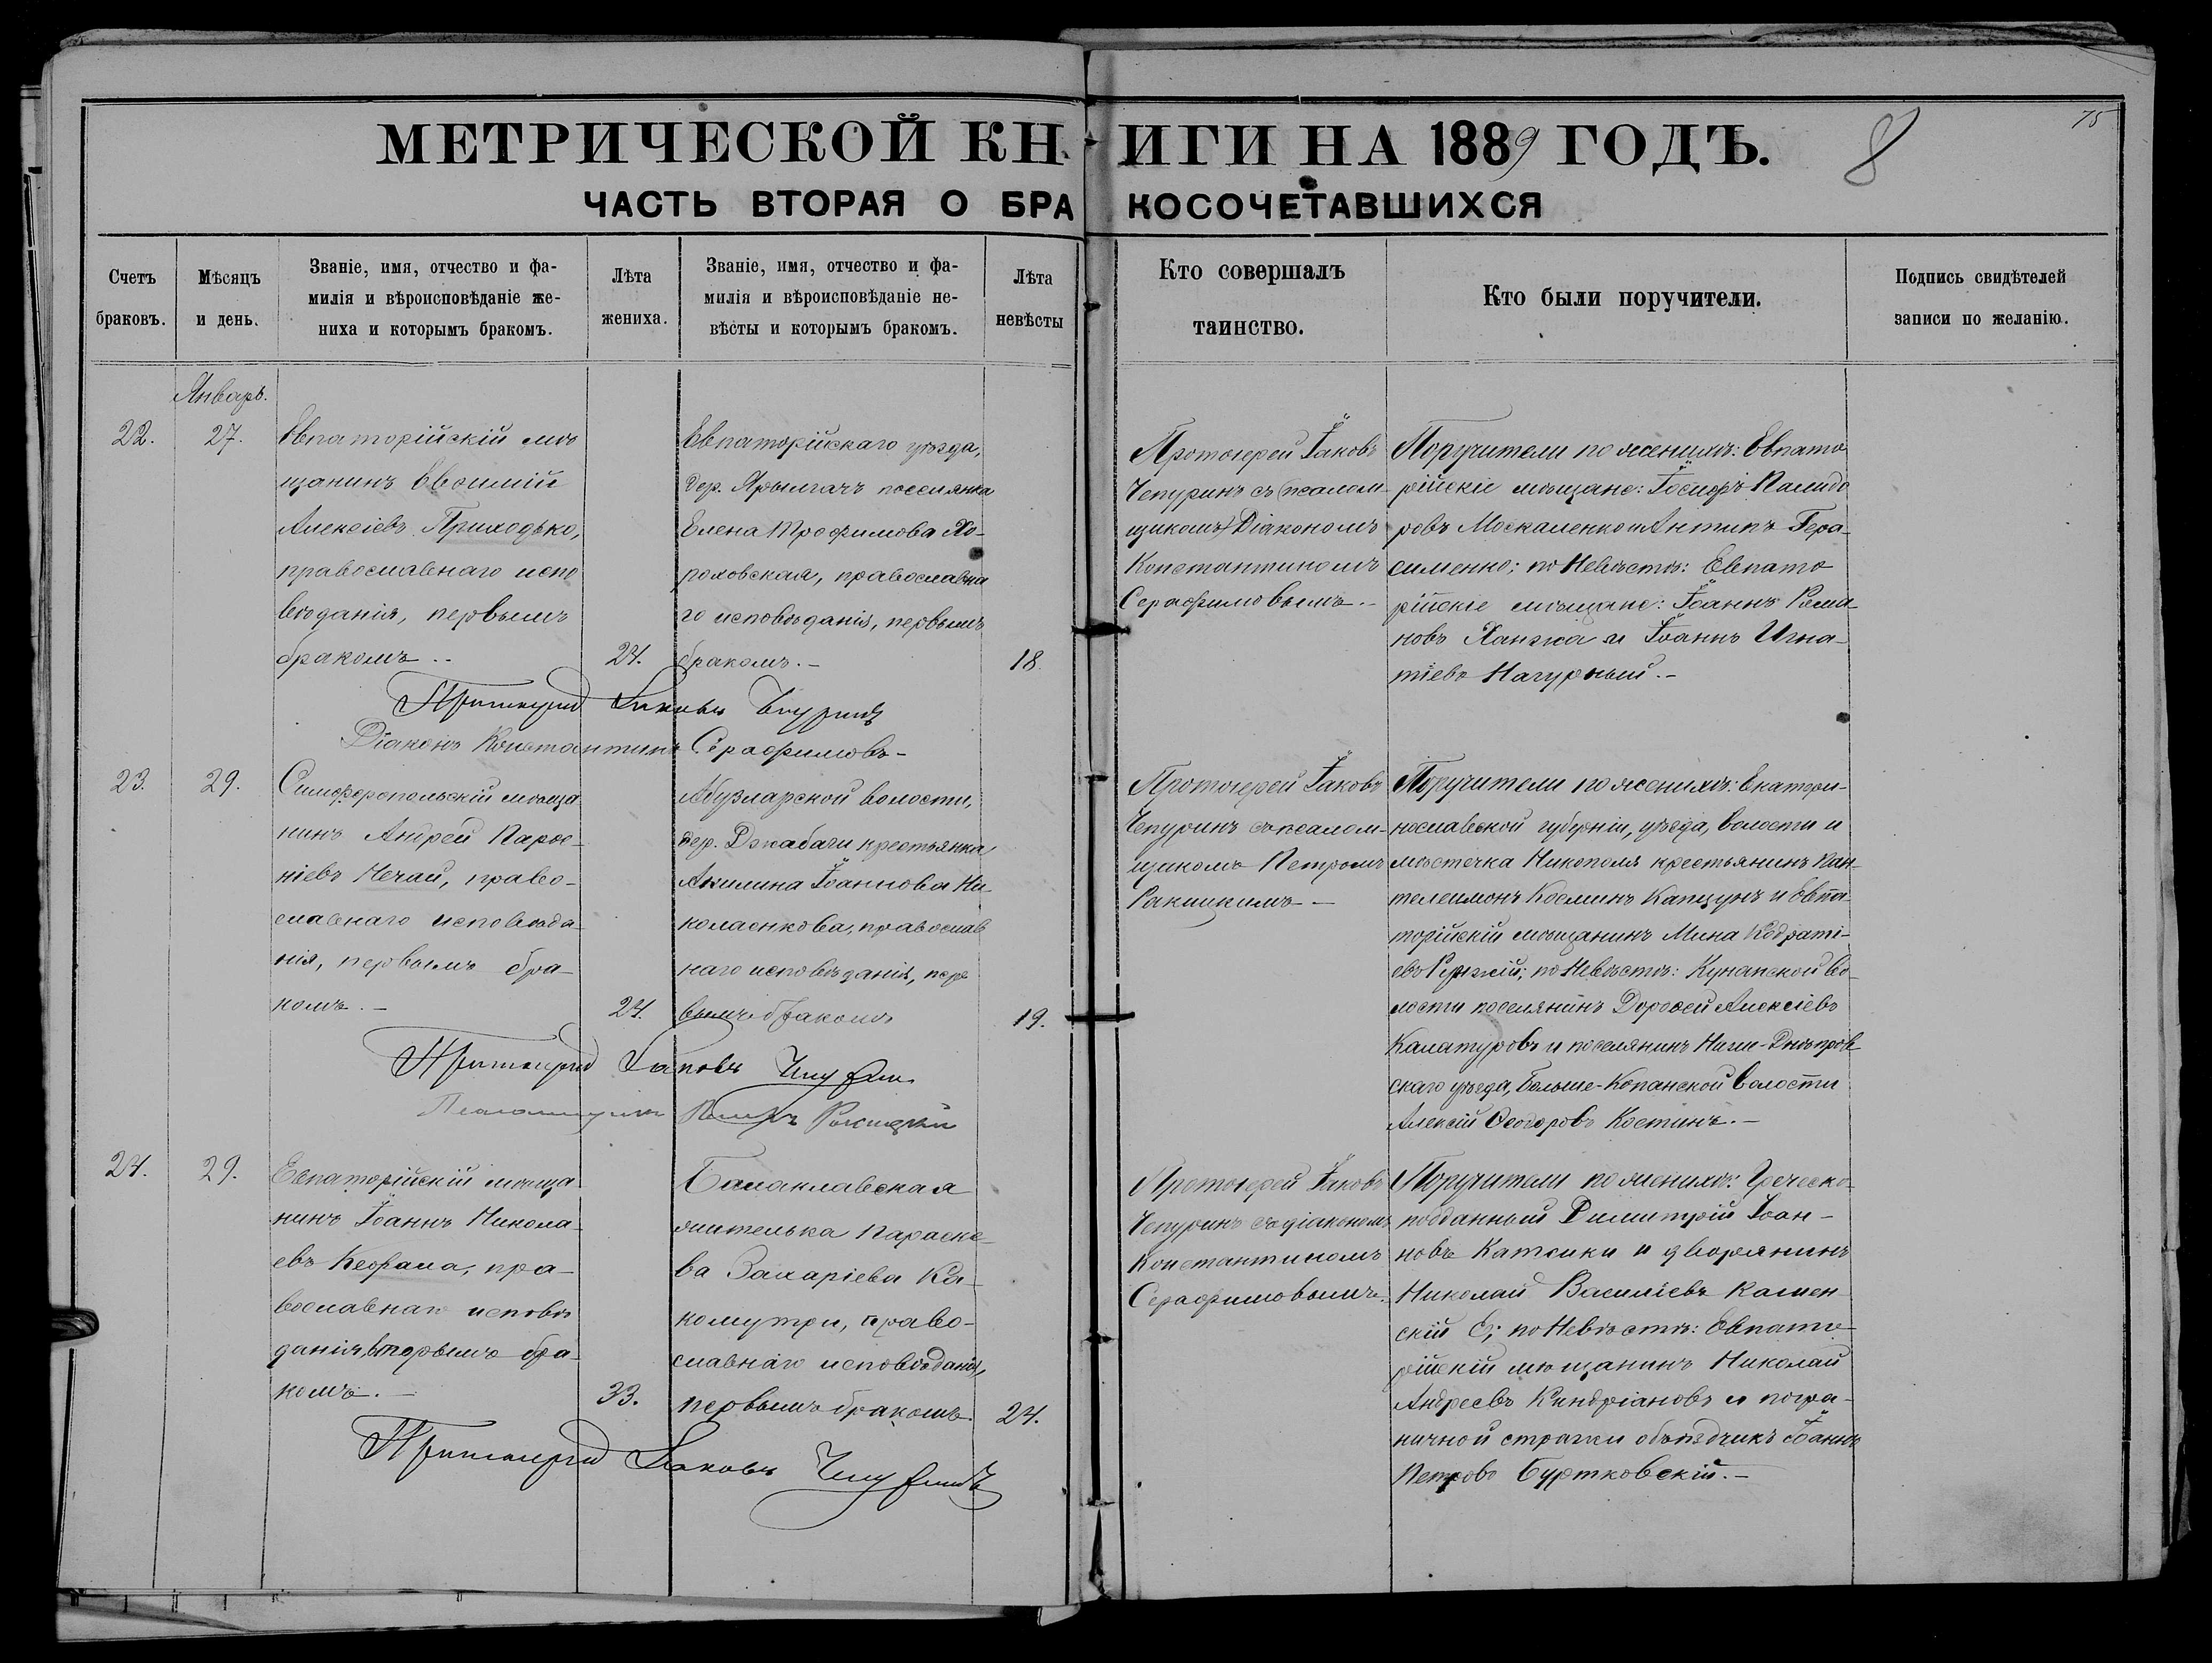 МЕТРИЧЕСКОЙ КНИГИ НА 1889 ГОДЪ.
8
75
ЧАСТЬ ВТОРАЯ О БРАКОСОЧЕТАВШИХСЯ
Счетъ
браковъ.
Мѣсяцъ
и день.
Званіе, имя, отчество и фа-
милія и вѣроисповѣданіе же-
ниха и которымъ бракомъ.
Лѣта
жениха.
Званіе, имя, отчество и фа-
милія и вѣроисповѣданіе не-
вѣсты и которымъ бракомъ.
Лѣта
невѣсты
Кто совершалъ
таинство.
Кто были поручители.
Подпись свидѣтелей
записи по желанію.
Январь.
22.
27.
Евпаторійскій мѣ
щанинъ Евѳимій
Алексіевъ Приходько,
православнаго испо
вѣданія, первымъ
бракомъ..
24.
Евпаторійскаго уѣзда,
дер. Ярылгачъ поселянка
Елена Трофимова Хо-
роховская, православна
го исповѣданія, первымъ
бракомъ.-
18.
Протоіерей Іаковъ
Чепуринъ съ (псалом-
щикомъ) Діакономъ
Константиномъ
Серафимовымъ.-
Поручители по женихѣ: Евпато
рійскіе мѣщане: Іосифъ Полидо
ровъ Москаленко и Антипъ Гера-
сименко; по Невѣстѣ: Евпато
рійскіе мѣщане: Іоаннъ Рома
новъ Ханжа и Іоаннъ Игна-
тіевъ Нагурный.-
Протоіерей Іаковъ Чепуринъ
Діаконъ Константинъ Серафимовъ-
23.
29.
Симферопольскій мѣща
нинъ Андрей Парѳе-
ніевъ Нечай, право-
славнаго исповѣда-
нія, первымъ бра-
комъ.-
24.
Абузларской волости,
дер. Джабачи крестьянка
Акилина Іоаннова Ни-
колаенкова, православ
наго исповѣданія, пер
вымъ бракомъ
19.
Протоіерей Іаковъ
Чепуринъ съ псалом-
щикомъ Петромъ
Ракицкимъ-
Поручители по женихѣ: Екатери-
нославской губерніи, уѣзда, волости и
мѣстечка Никополя крестьянинъ Пан-
телеимонъ Косминъ Капщунъ и Евпа
торійскій мѣщанинъ Мина Кодраті-
евъ Рыжій; по Невѣстѣ: Кунанской во-
лости поселянинъ Дороѳей Алексіевъ
Калатуровъ и поселянинъ Ниже-Днѣпров
скаго уѣзда, Больше-Копанской волости
Алексій Ѳеодоровъ Костинъ.-
Протоіерей Іаковъ Чепуринъ
Псаломщикъ Петръ Ракицкій
24.
29.
Евпаторійскій мѣща
нинъ Іоаннъ Никола-
евъ Кефала, пра-
вославнаго исповѣ
данія, вторымъ бра-
комъ.-
33.
Балаклавская
жителька Параске-
ва Захаріева Ка-
комутри, право-
славнаго исповѣданія,
первымъ бракомъ.
24.
Протоіерей Іаковъ
Чепуринъ съ діакономъ
Константиномъ
Серафимовымъ.
Поручители по женихѣ: Греческо-
подданный Димитрій Іоан-
новъ Катсики и дворянинъ
Николай Василіевъ Камен-
скій; по Невѣстѣ: Евпато
рійскій мѣщанинъ Николай
Андреевъ Киндріановъ и погра-
ничной стражи объѣздчикъ Іоаннъ
Петровъ Буртковскій.-
Протоіерей Іаковъ Чепуринъ